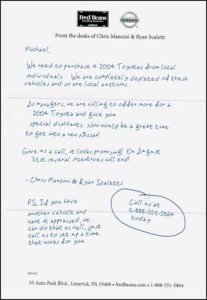 Fred Beans
From the desks of Chris Mancini & Ryan Scaletti
Michael,
We need to purchase 4 2004 Toyotas from local
individuals. We are completely depleted of these
vehicles and so are local auctions.
As managers, we are willing to offer more for a
2004 Toyota and give you
special discounts. Now would be a great time
to get into a new Nissan!
Give us a call, it looks promising! On August
31st several incentives will end!
- Chris Mancini & Ryan Scaletti
P.S. If you have
another vehicle and
want it appraised, we
can do that as well, just
call us to set up a time
that works for you
Call us at
1-888-551-3864
today
55 Auto Park Blvd., Limerick, PA 19468 • fredbeans.com • 1-888-551-3864